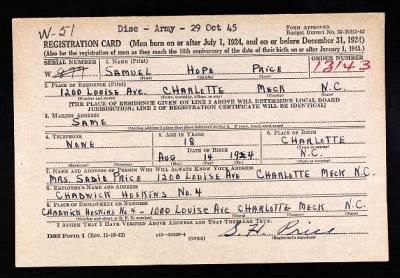 W-51
Disc - Army - 29 Oct 45
FORM APPROVED
REGISTRATION CARD (Men born on or after July 1, 1924, and on or before December 31, 1924)
(Also for the registration of men as they reach the 18th anniversary of the date of their birth on or after January 1, 1943.)
SERIAL NUMBER
1. NAME (Print)
ORDER NUMBER
W
SAMUEL HOPE PRICE
13143
(First) (Middle) (Last)
2. PLACE OF RESIDENCE (Print)
1200 LOUISE AVE. CHARLOTTE MECK N.C.
(Number and street) (Town, township, village, or city) (County) (State)
[THE PLACE OF RESIDENCE GIVEN ON LINE 2 ABOVE WILL DETERMINE LOCAL BOARD
JURISDICTION; LINE 2 OF REGISTRATION CERTIFICATE WILL BE IDENTICAL]
3. MAILING ADDRESS
SAME
[Mailing address if other than place indicated on line 2. If same, insert word same]
4. TELEPHONE
5. AGE IN YEARS
6. PLACE OF BIRTH
NONE
18
CHARLOTTE
DATE OF BIRTH
(Town or county)
AUG 14 1924
N.C.
(Exchange) (Number)
(Mo.) (Day) (Yr.)
(State or country)
7. NAME AND ADDRESS OF PERSON WHO WILL ALWAYS KNOW YOUR ADDRESS
MRS. SADIE PRICE 1200 LOUISE AVE CHARLOTTE MECK N.C.
8. EMPLOYER'S NAME AND ADDRESS
CHADWICK HOSKINS NO. 4
9. PLACE OF EMPLOYMENT OR BUSINESS
CHADWICK HOSKINS NO 4 - 1000 LOUISE AVE CHARLOTTE MECK N.C.
(Number and street or R. F. D. number) (Town) (County) (State)
I AFFIRM THAT I HAVE VERIFIED ABOVE ANSWERS AND THAT THEY ARE TRUE.
S. H. Price
DSS Form 1 (Rev. 11-16-42)
(OVER)
(Registrant's signature)